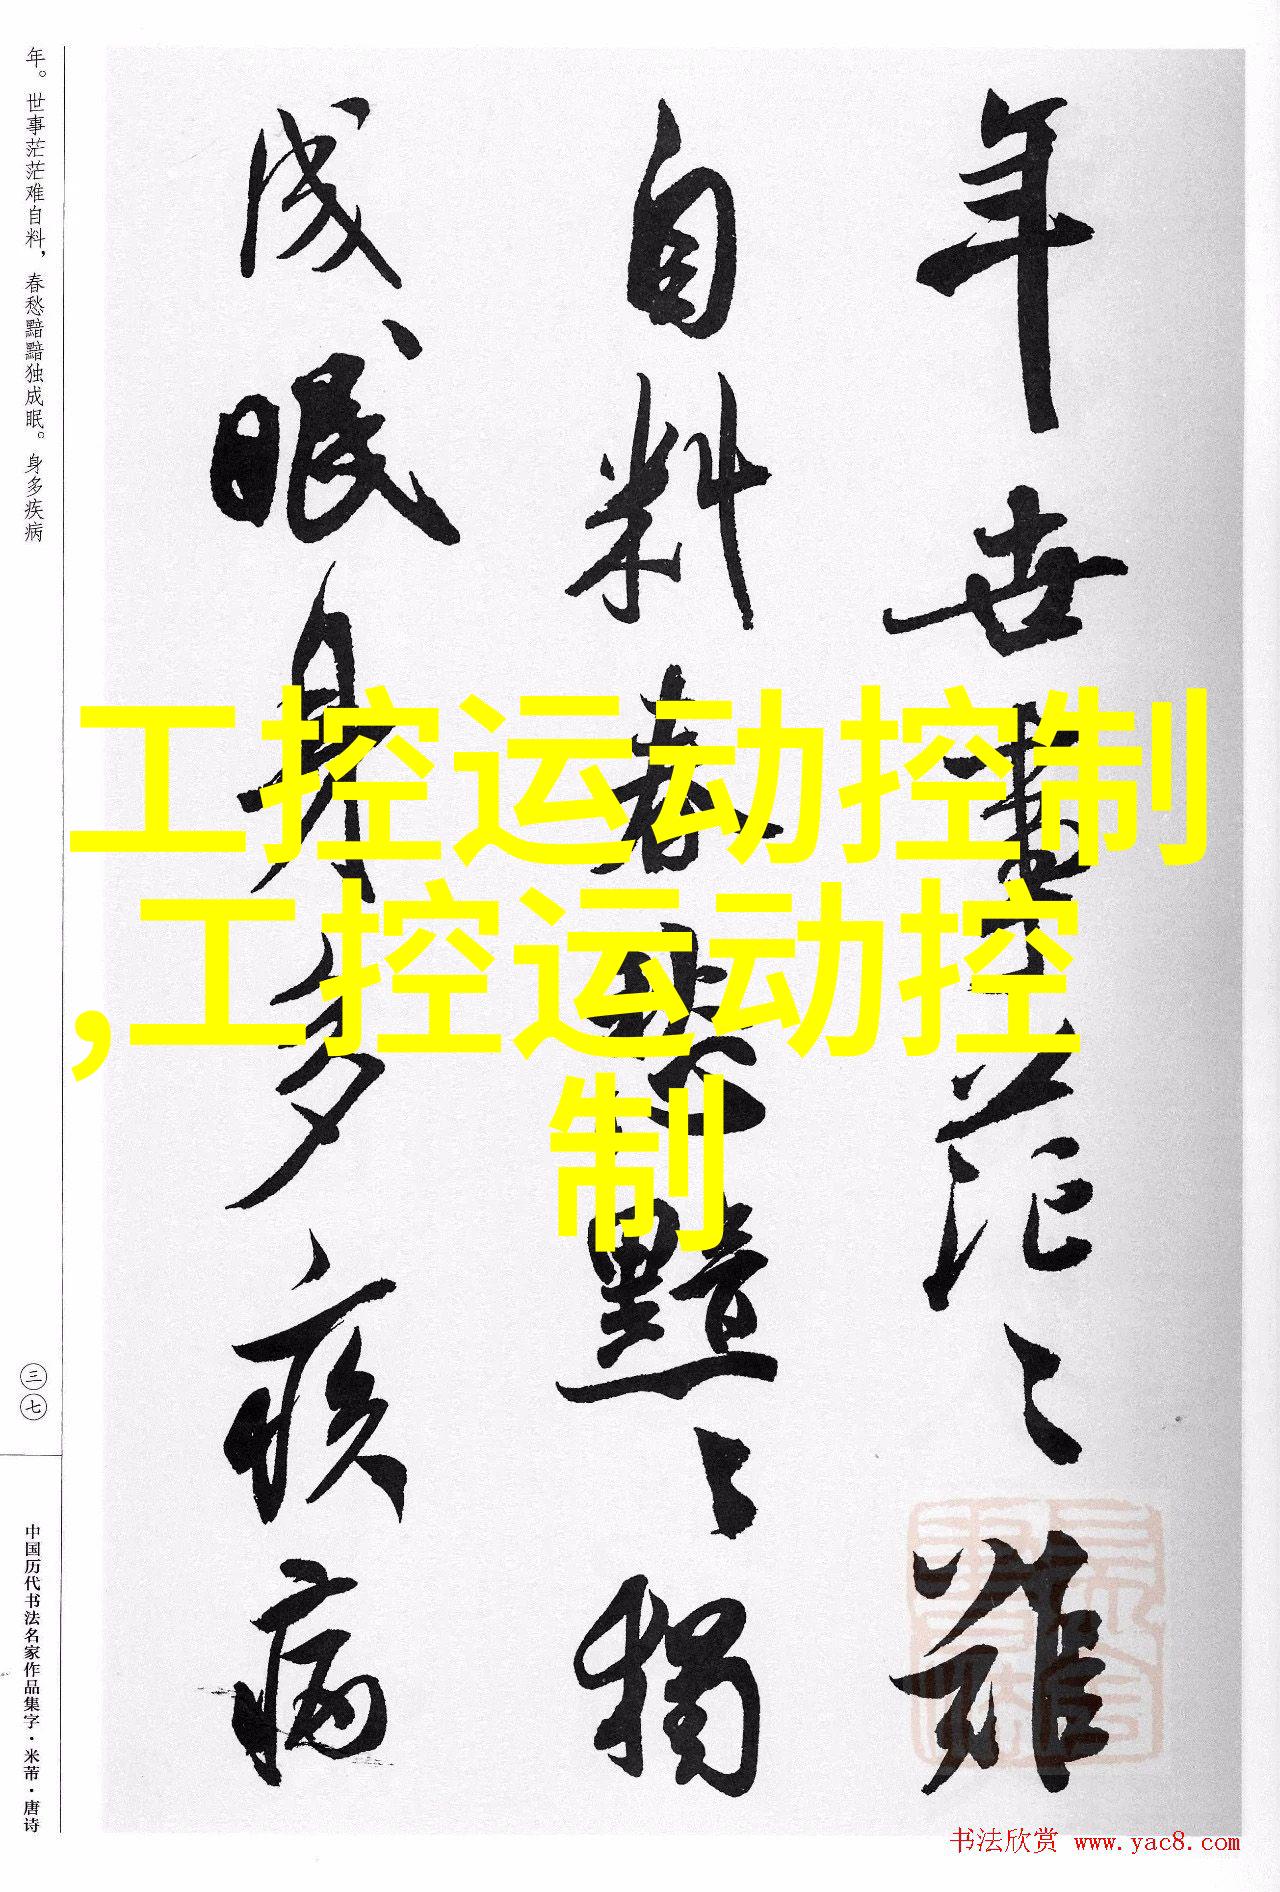 年世事茫〻難
自料春愁黯〻獨
成眠身多疾病
年。世事茫茫难自料，春愁黯黯独成眠。身多疾病
三七
中国历代书法名家作品集字·米芾·唐诗
工控运动控制
,工控运动控
制
书法欣赏 www.yac8.com